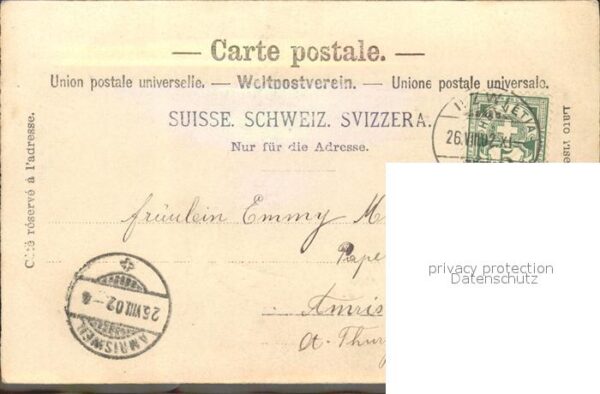 — Carte postale. —
Union postale universelle. — Weltpostverein. — Unione postale universale.
SUISSE. SCHWEIZ. SVIZZERA.
Nur für die Adresse.
Côté réservé à l'adresse.
HELVETIA
26.VIII.02.XI
Lato
fräulein Emmy M
Pape
Amris
Ct. Thur
AMRISWEIL
26.VIII.02.-4
privacy protection
Datenschutz